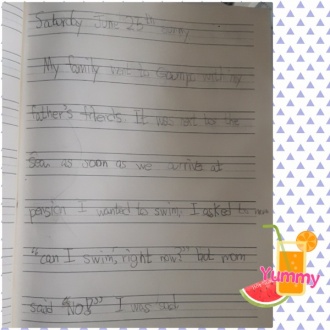 Saturday June 25th sunny
My family went to Ganhwa with my
father's friends. It was next to the
Sea. as soon as we arrive at
pension I wanted to swim. I asked to mom
"can I swim, right now?" but mom
said "NO!!" I was sad
Yummy